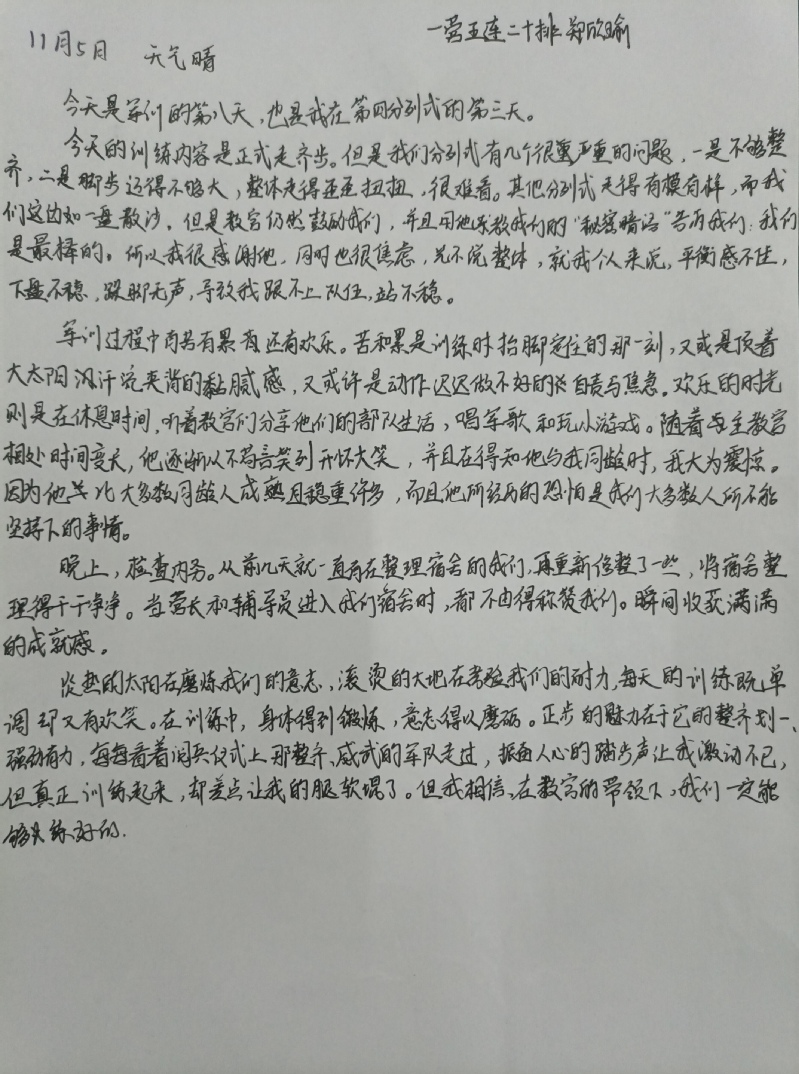 一营五连二十排 郑欣瑜
11月5日 天气晴
今天是军训的第八天，也是我在第四分列式的第三天。
今天的训练内容是正式走齐步。但是我们分列式有几个很严重的问题，一是不够整
齐，二是脚步迈得不够大，整体走得歪歪扭扭，很难看。其他分列式走得有模有样，而我
们这边如一盘散沙。但是教官仍然鼓励我们，并且用他来教我们的“秘密暗语”告诉我们：我们
是最棒的。所以我很感谢他，同时也很焦虑，先不说整体，就我个人来说，平衡感不佳，
下盘不稳，跺脚无声，导致我跟不上队伍，站不稳。
军训过程中有苦有累有，还有欢乐。苦和累是训练时抬脚定住的那一刻，又或是顶着
大太阳汗流夹背的黏腻感，又或许是动作迟迟做不好的自责与焦急。欢乐的时光
则是在休息时间，听着教官们分享他们的部队生活，唱军歌和玩小游戏。随着与主教官
相处时间变长，他逐渐从不苟言笑到开怀大笑，并且在得知他与我同龄时，我大为震惊。
因为他比大多数同龄人成熟且稳重许多，而且他所经历的恐怕是我们大多数人所不能
坚持下的事情。
晚上，检查内务。从前几天就一直有在整理宿舍的我们，再重新修整了一些，将宿舍整
理得干干净净。当营长和辅导员进入我们宿舍时，都不由得称赞我们。瞬间收获满满
的成就感。
炎热的太阳在磨炼我们的意志，滚烫的大地在考验我们的耐力，每天的训练既单
调却又有欢笑。在训练中，身体得到锻炼，意志得以磨砺。正步的魅力在于它的整齐划一、
强劲有力，每每看着阅兵仪式上那整齐、威武的军队走过，振奋人心的踏步声让我激动不已，
但真正训练起来，却差点让我的腿软塌了。但我相信，在教官的带领下，我们一定能
够练好的.